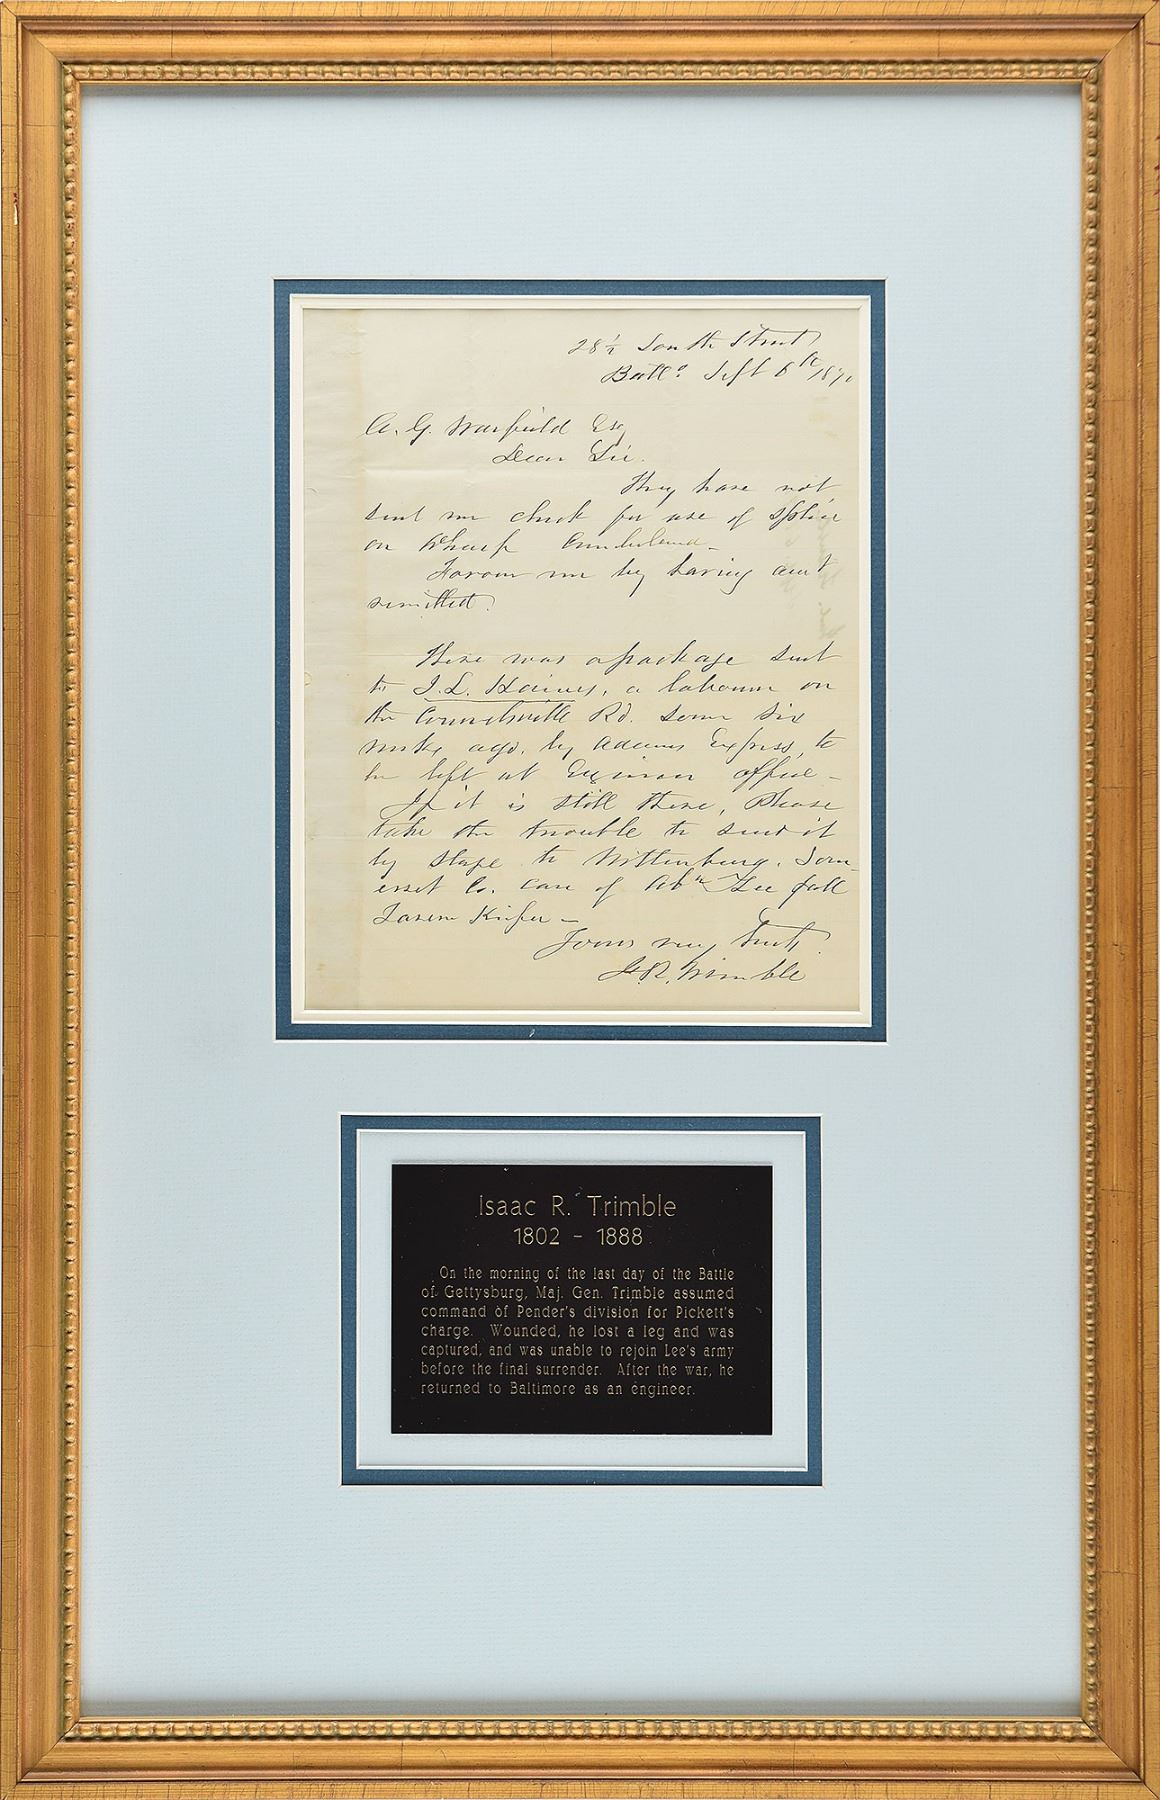 28 1/2 South Street
Balto. Sept 6th 187
A. G. Warfield Esq
Dear Sir.
They have not
sent me check for use of
on Wharf Cumberland
Favour me by having amt
remitted.
There was a package sent
to J. L. Haines, a labourer on
the Connelsville Rd. some six
weeks ago, by Adams Express, to
be left at Engineer office
If it is still there, Please
take the trouble to send it
by stage to Wittenburg. Som-
erset Co. care of toll
Tavern Keeper
Yours very truly
I. R. Trimble
Isaac R. Trimble
1802 - 1888
On the morning of the last day of the Battle
of Gettysburg, Maj. Gen. Trimble assumed
command of Pender's division for Pickett's
charge. Wounded, he lost a leg and was
captured, and was unable to rejoin Lee's army
before the final surrender. After the war, he
returned to Baltimore as an engineer.